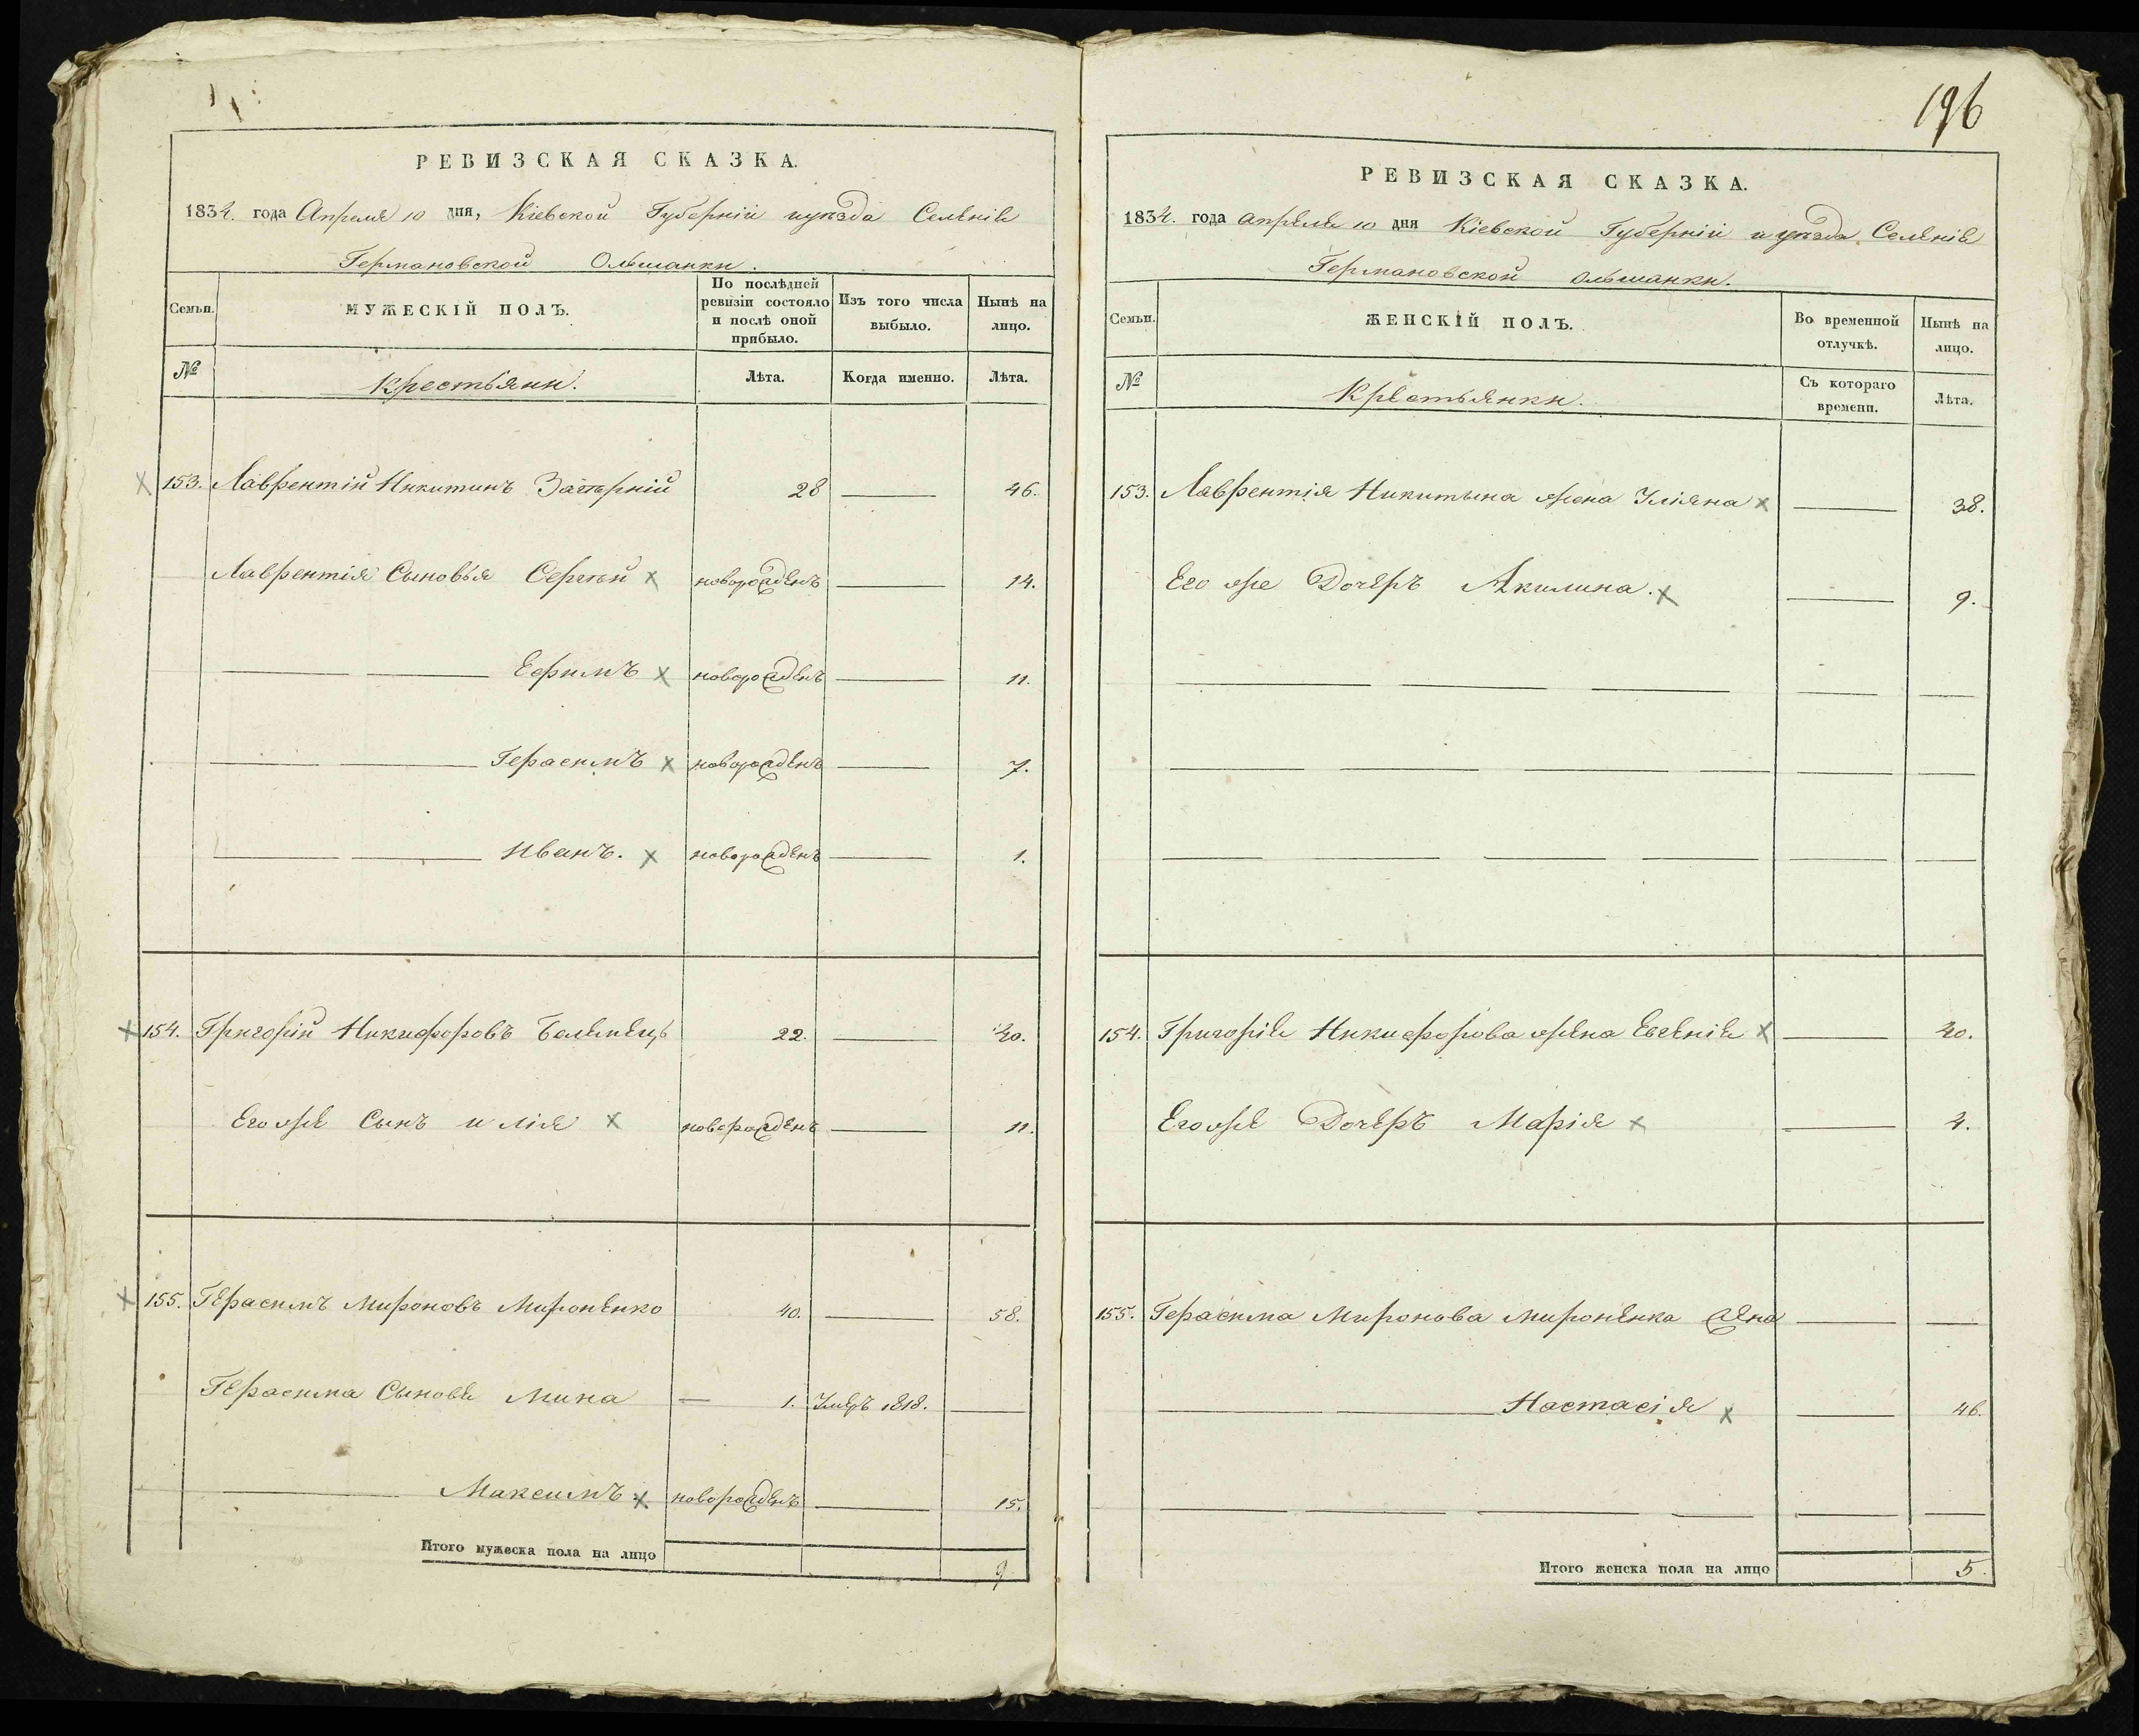 196
РЕВИЗСКАЯ СКАЗКА.
1834. года Апреля 10 дня, Кіевской Губерніи и уѣзда Селенія
Германовской Ольшанки.
Семьи.
МУЖЕСКІЙ ПОЛЪ.
По послѣдней ревизіи состояло и послѣ оной прибыло.
Изъ того числа выбыло.
Нынѣ на лицо.
№
Крестьяни.
Лѣта.
Когда именно.
Лѣта.
153. Лаврентій Никитинъ 28 46.
Лаврентія Сыновья Сергѣй новорожденъ 14.
Ефимъ новорожденъ 11.
Герасимъ новорожденъ 7.
Иванъ. новорожденъ 1.
154. Григорій Никифоровъ 22. 40.
Его же Сынъ илія новорожденъ 11.
155. Герасимъ Мироновъ Мироненко 40. 58.
Герасима Сыновя Мина 1. Умеръ 1818.
Максимъ новорожденъ 15.
Итого мужеска пола на лицо 9
РЕВИЗСКАЯ СКАЗКА.
1834. года апреля 10 дня Кіевской Губерніи и уѣзда Селенія
Германовской Ольшанки.
Семьи.
ЖЕНСКІЙ ПОЛЪ.
Во временной отлучкѣ.
Нынѣ на лицо.
№
Крестьянки.
Съ котораго времени.
Лѣта.
153. Лаврентія Никитына жена Уліяна 38.
Его же Дочеръ Акилина. 9.
154. Григорія Никифорова жена Евгенія 40.
Его же Дочеръ Марія 4.
155. Герасима Миронова Мироненка жена
Настасія 46.
Итого женска пола на лицо 5.